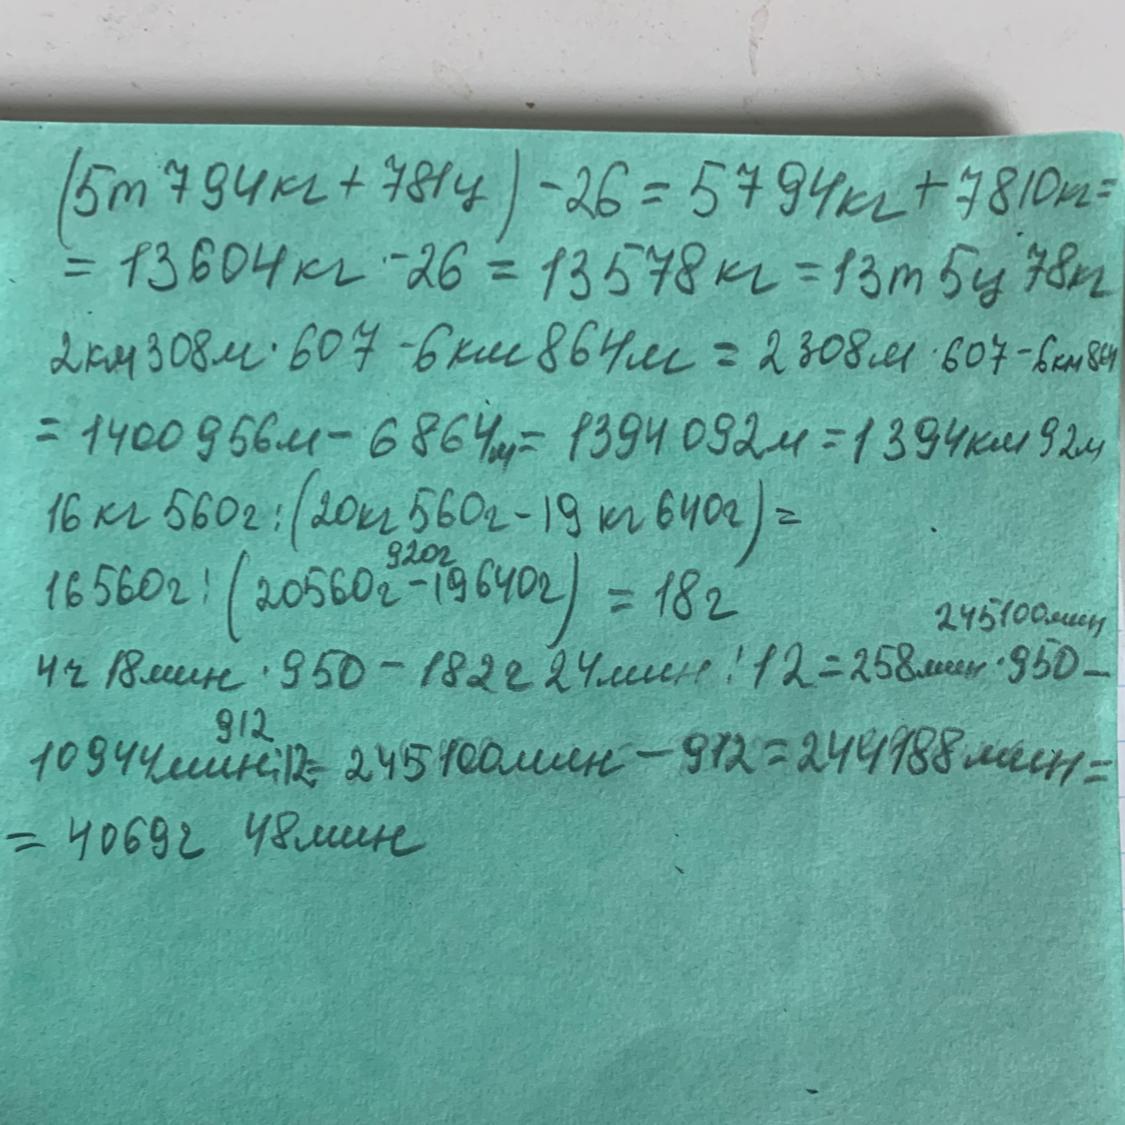 (5т 794кг + 781ц) - 26 = 5794кг + 7810кг =
= 13604кг · - 26 = 13578кг = 13т 5ц 78кг
2км 308м · 607 - 6км 864м = 2308м · 607 - 6км 864
= 1400956м - 6864м = 1394092м = 1394км 92м
16кг 560г : (20кг 560г - 19кг 640г) =
920г
16560г : (20560г - 19640г) = 18г
245100мин
4ч 18мин · 950 - 182ч 24мин : 12 = 258мин · 950 -
912
10944мин : 12 = 245100мин - 912 = 244188мин =
= 4069ч 48мин